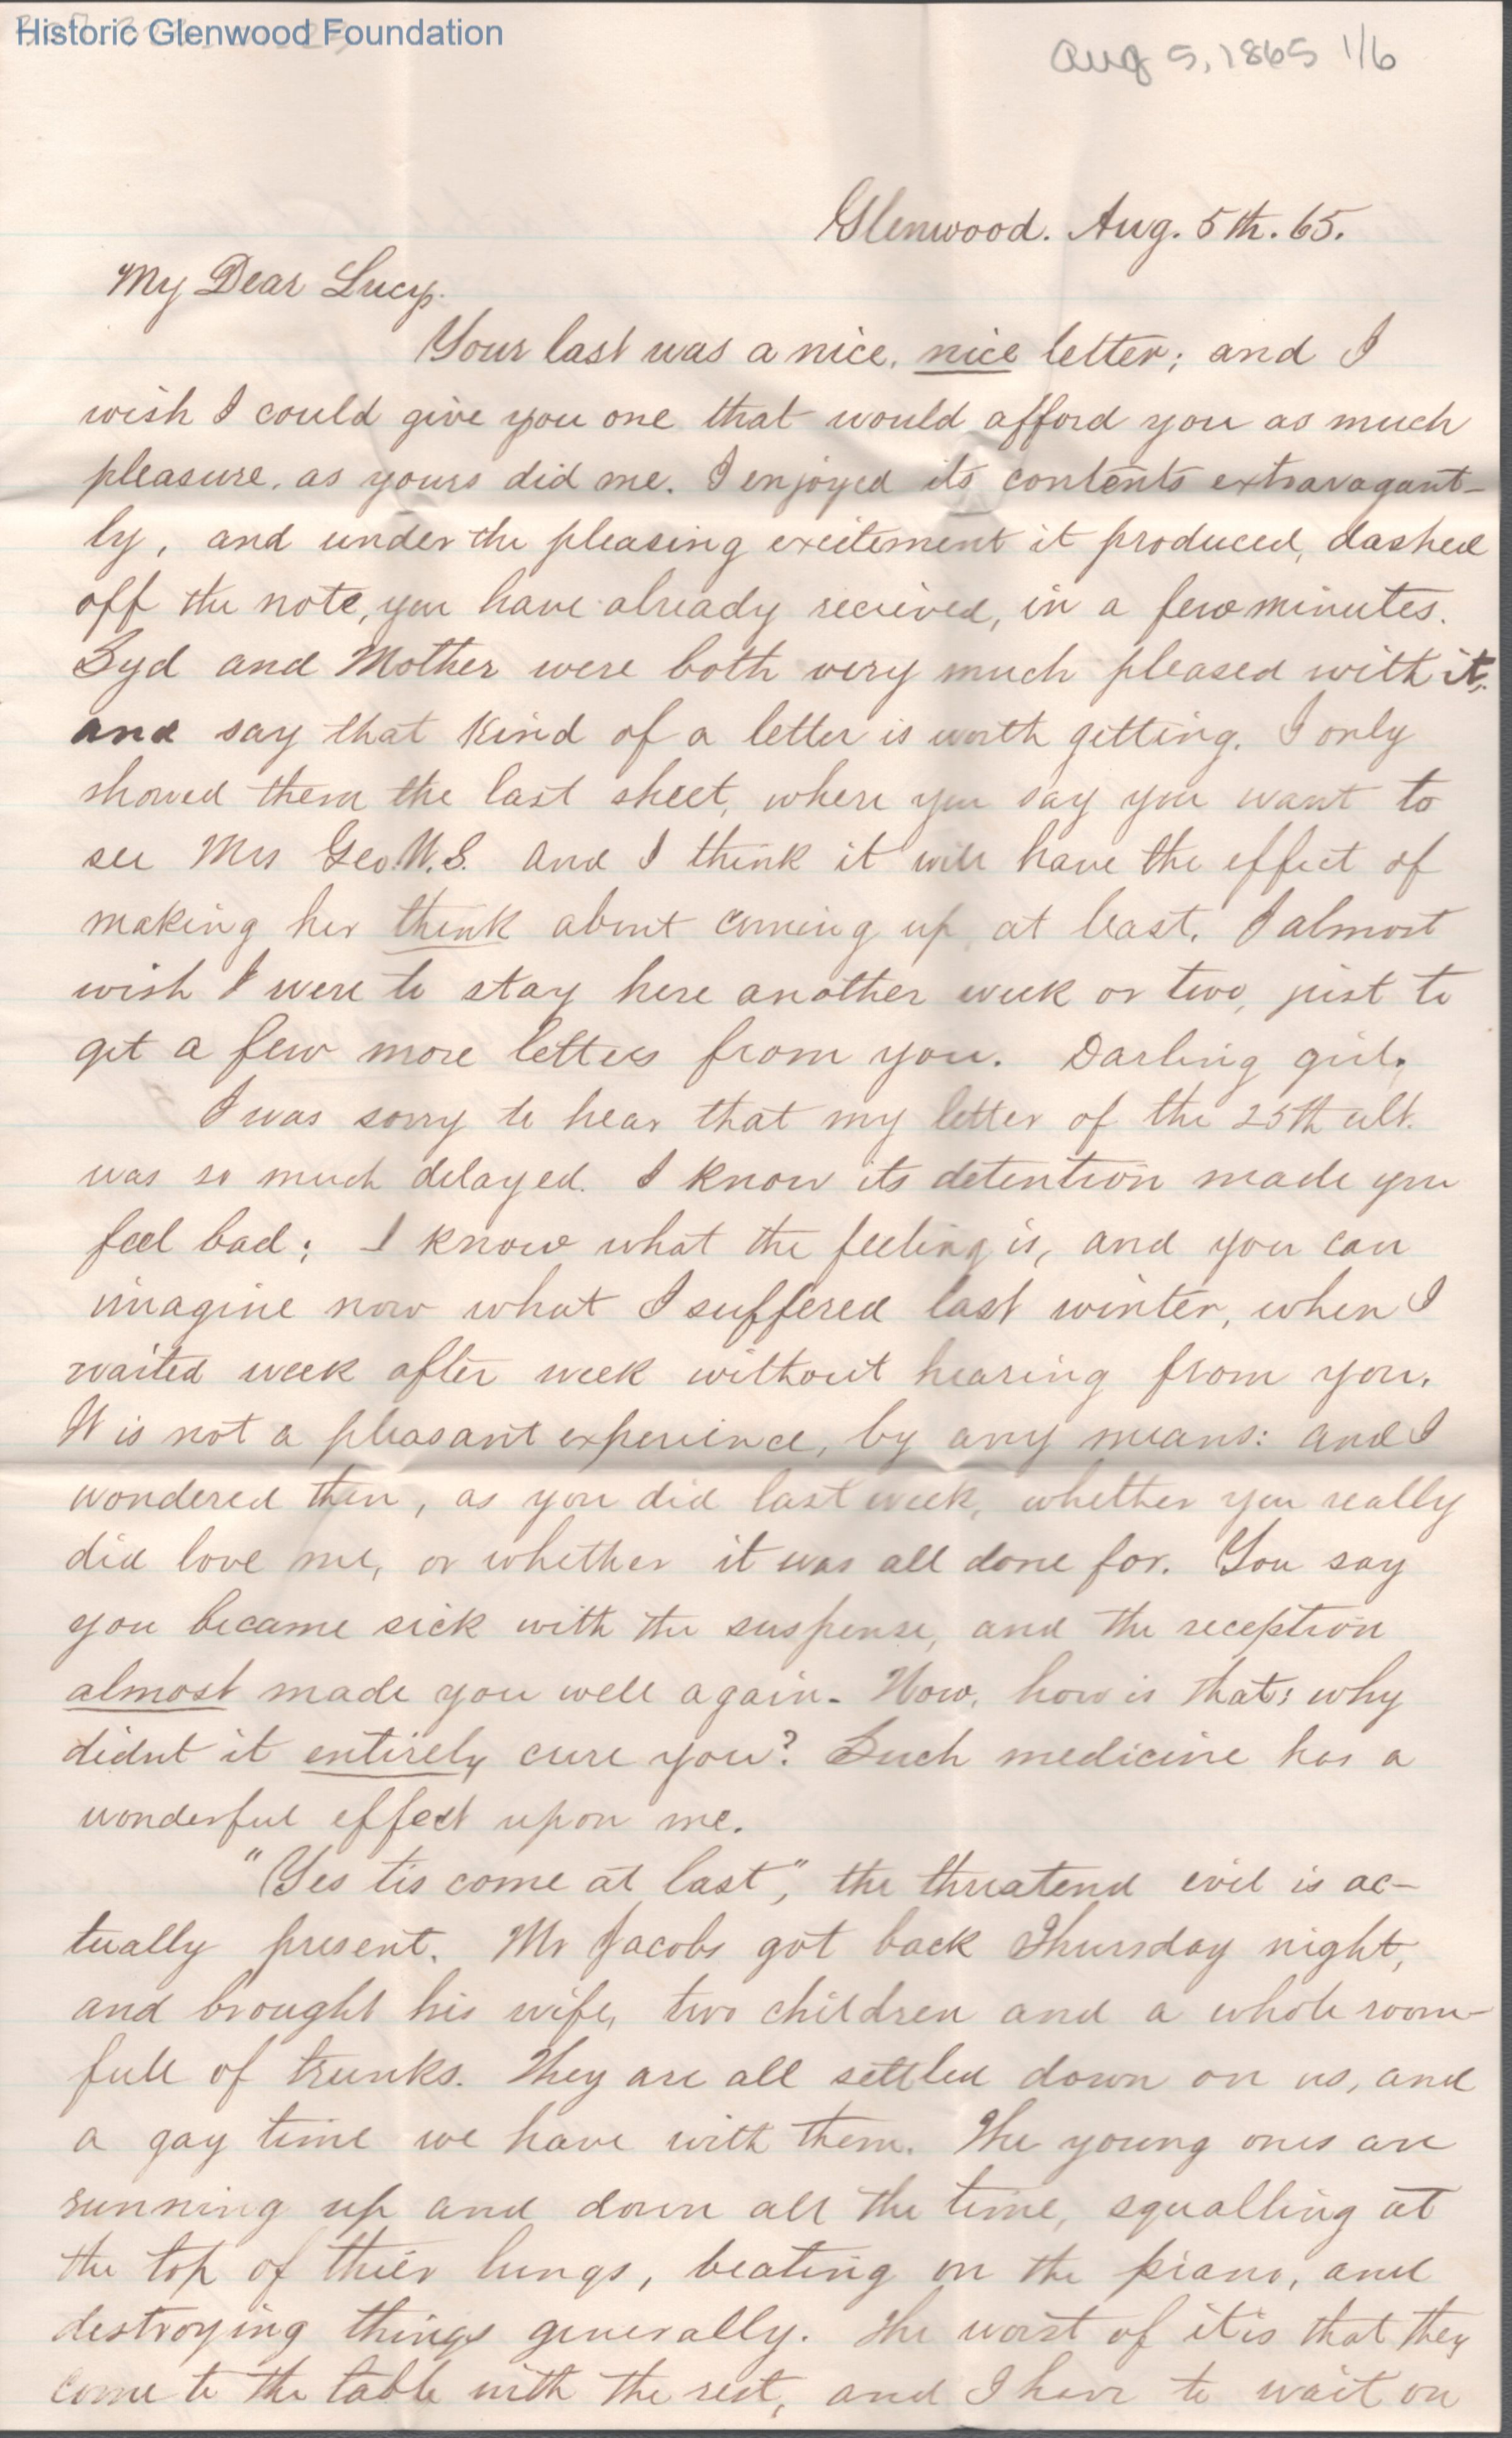 Historic Glenwood Foundation
Aug 5, 1865 1/6
Glenwood. Aug. 5th. 65.
My Dear Lucy.
Your last was a nice, nice letter; and I
wish I could give you one that would afford you as much
pleasure, as yours did me. I enjoyed its contents extravagant-
ly, and under the pleasing excitement it produced, dashed
off the note, you have already recieved, in a few minutes.
Syd and Mother were both very much pleased with it,
and say that kind of a letter is worth getting. I only
showed them the last sheet, where you say you want to
see Mrs Geo. W. S. and I think it will have the effect of
making her think about coming up, at least. I almost
wish I were to stay here another week or two, just to
get a few more letters from you. Darling girl.
I was sorry to hear that my letter of the 25th ult.
was so much delayed. I know its detention made you
feel bad; I know what the feeling is, and you can
imagine now what I suffered last winter, when I
waited week after week without hearing from you.
It is not a pleasant experience, by any means: and I
wondered then, as you did last week, whether you really
did love me, or whether it was all done for. You say
you became sick with the suspense, and the reception
almost made you well again. Now, how is that; why
didnt it entirely cure you? Such medicine has a
wonderful effect upon me.
"Yes tis come at last", the threatend evil is ac-
tually present. Mr Jacobs got back Thursday night,
and brought his wife, two children and a whole room-
full of trunks. They are all settled down on us, and
a gay time we have with them. The young ones are
running up and down all the time, squalling at
the top of thier lungs, beating on the piano, and
destroying things generally. The worst of it is that they
come to the table with the rest, and I have to wait on